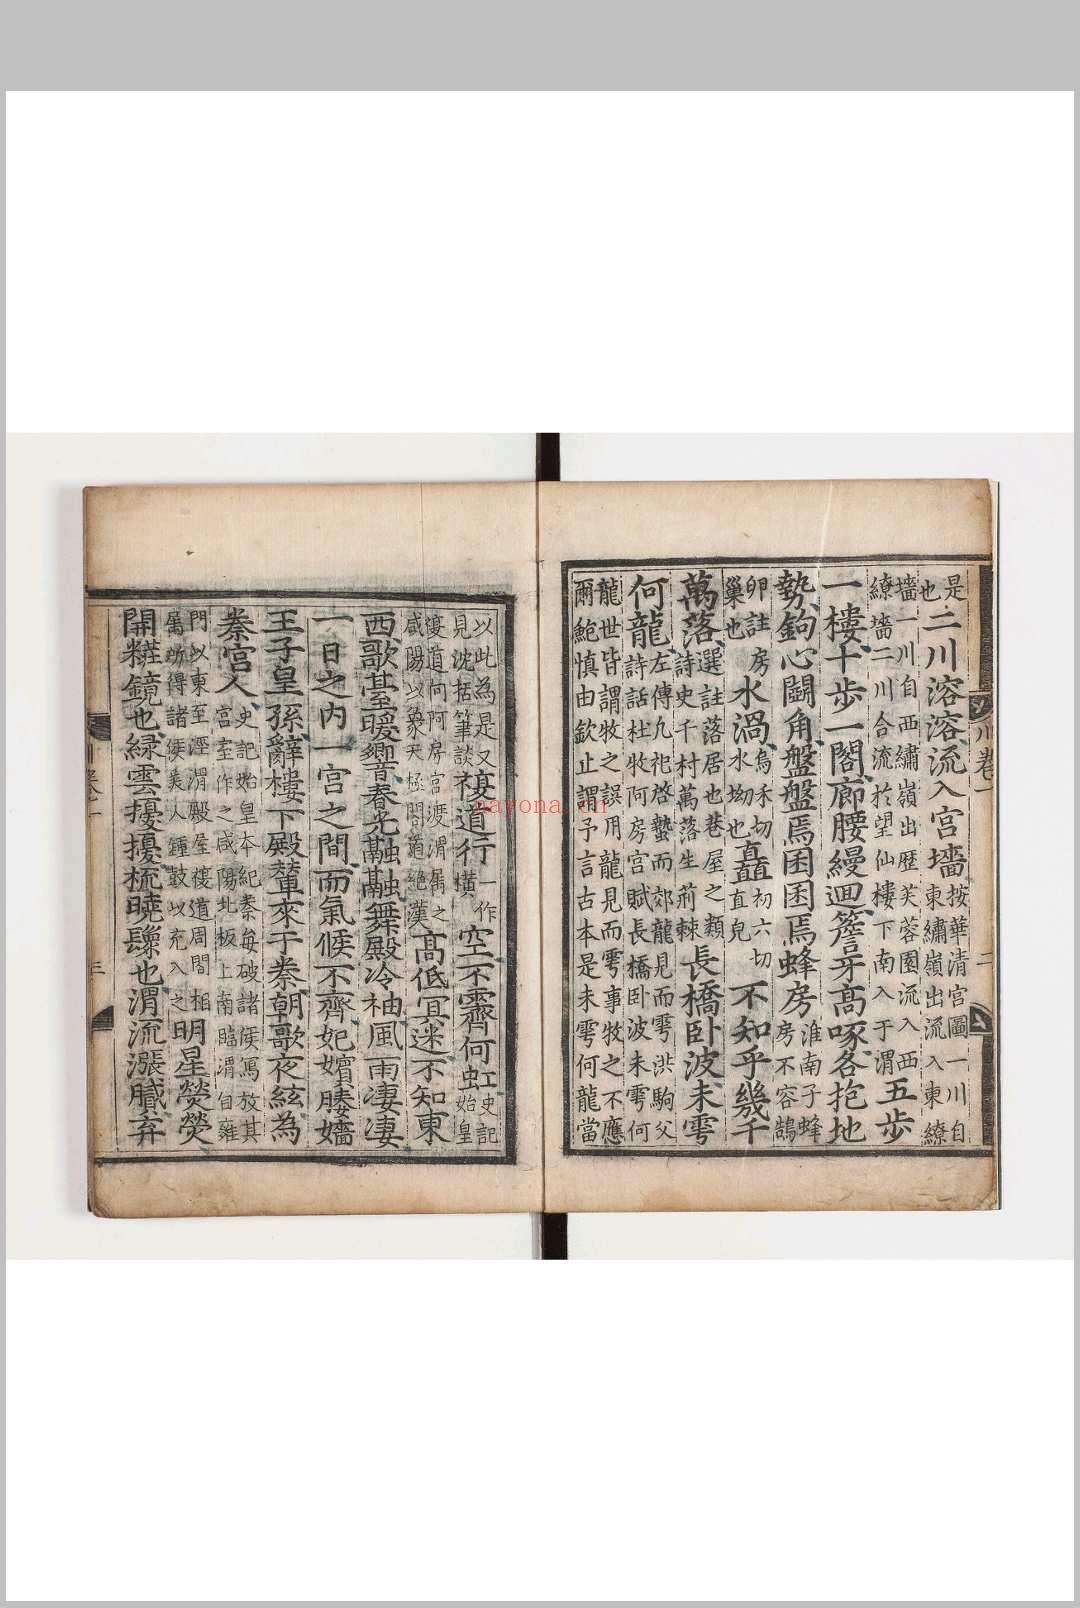 是也二川溶溶流入宮墻按華清宮圖一川自東繡嶺出流入東繚
墻一川自西繡嶺出歷芙蓉園流入西繚墻二川合流於望仙樓下南入于渭五步
一樓十步一閣廊腰縵迴簷牙髙啄各抱地
勢鉤心鬪角盤盤焉囷囷焉蜂房淮南子蜂房不容鵠
卵註房巢也水渦烏禾切水坳也矗初六切直皃不知乎幾千
萬落選註落居也巷屋之類詩史千村萬落生荊棘長橋卧波未雩
何龍左傳凡祀啓蟄而郊龍見而雩洪駒父詩話杜牧阿房宮賦長橋卧波未雩何
龍世皆謂牧之誤用龍見而雩事牧之不應爾鮑慎由欽止謂予言古本是未雩何龍當
以此為是又見沈括筆談複道行一作橫空不霽何虹史記始皇
複道何阿房宮渡渭屬之咸陽以象天極閣道絕漢髙低冥迷不知東
西歌臺暖響春光融融舞殿冷袖風雨凄凄
一日之内一宮之間而氣候不齊妃嬪媵嬙
王子皇孫辭樓下殿輦來于秦朝歌夜絃為
秦宮人史記始皇本紀秦每破諸侯寫放其宮室作之咸陽北坂上南臨渭自雍
門以東至涇渭殿屋複道周閣相屬所得諸侯美人鍾鼓以充入之明星熒熒
開粧鏡也緑雲擾擾梳曉鬟也渭流漲膩弃
川卷一
二
三
nayona.cn